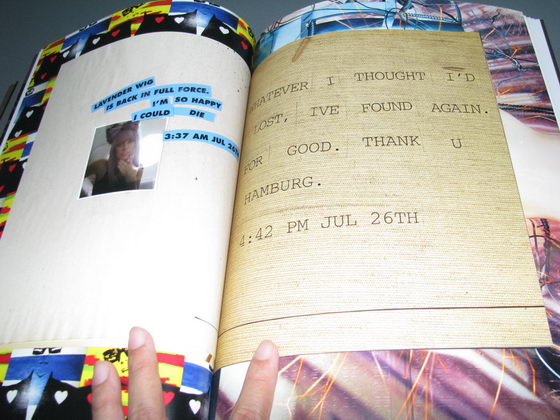 LAVENDER WIG
IS BACK IN FULL FORCE.
I'M SO HAPPY
I COULD DIE
3:37 AM JUL 26TH
WHATEVER I THOUGHT I'D
LOST, IVE FOUND AGAIN.
FOR GOOD. THANK U
HAMBURG.
4:42 PM JUL 26TH